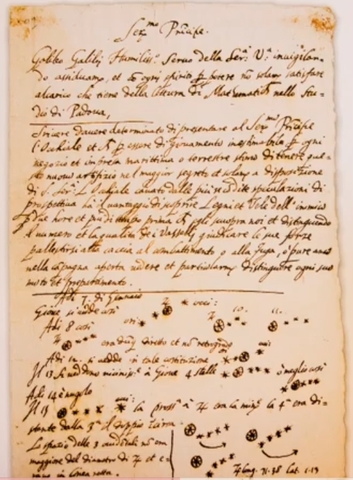 Ser.mo Principe.
Galileo Galilei Humiliss.o Servo della Ser.a V.a invigilan-
do assiduam.te, et cõ ogni spirito p potere nõ solam. satisfare
al carico che tiene della lettura di Mathematich. nello Stu-
dio di Padova,
Scrivere d'havere determinato di presentare al Ser.mo Principe
l'Occhiale et p essere di giovamento inestimabile p ogni
negozio et impresa marittima o terrestre stimo di tenere que-
sto nuovo artifizio nel maggior segreto et solam. a disposizione
di S. Ser.tà L'Occhiale cavato dalle più recondite speculazioni di
prospettiva ha il vantaggio di scoprire Legni et Vele dell'inimico
p due hore et più di tempo prima ch'egli scuopra noi et distinguendo
il numero et la qualità de i Vasselli giudicare le sue forze
p allestirsi alla caccia al combattimento o alla fuga, o pure anco
nella campagna aperta vedere et particolarm. distinguere ogni suo
moto et preparamento.
Adi 7. di Gennaio
Giove si vede così
Adi 8 così
10. 11.
era dũq diretto et nõ retrogrado
Adi 12. si vedde in tale costituzione
Il 13 si veddono vicinis.e a Giove 4 stelle o meglio così
Adi 14 è nugolo
Il 15 la pross.a a ♃ era la min.e la 4.a era di-
stante dalla 3.a il doppio
Lo spazio delle 3 occidentali nõ era
maggiore del diametro di ♃ et e-
rano in linea retta.
♃ long. 71.38 Lat. 1.13